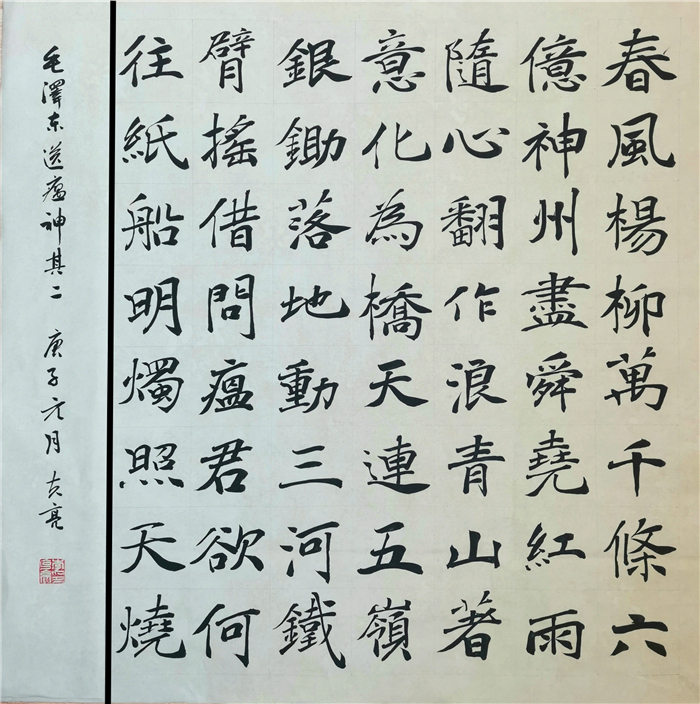 春風楊柳萬千條六
億神州盡舜堯紅雨
隨心翻作浪青山著
意化為橋天連五嶺
銀鋤落地動三河鐵
臂搖借問瘟君欲何
往紙船明燭照天燒
毛澤东送瘟神其二 庚子元月 克亮